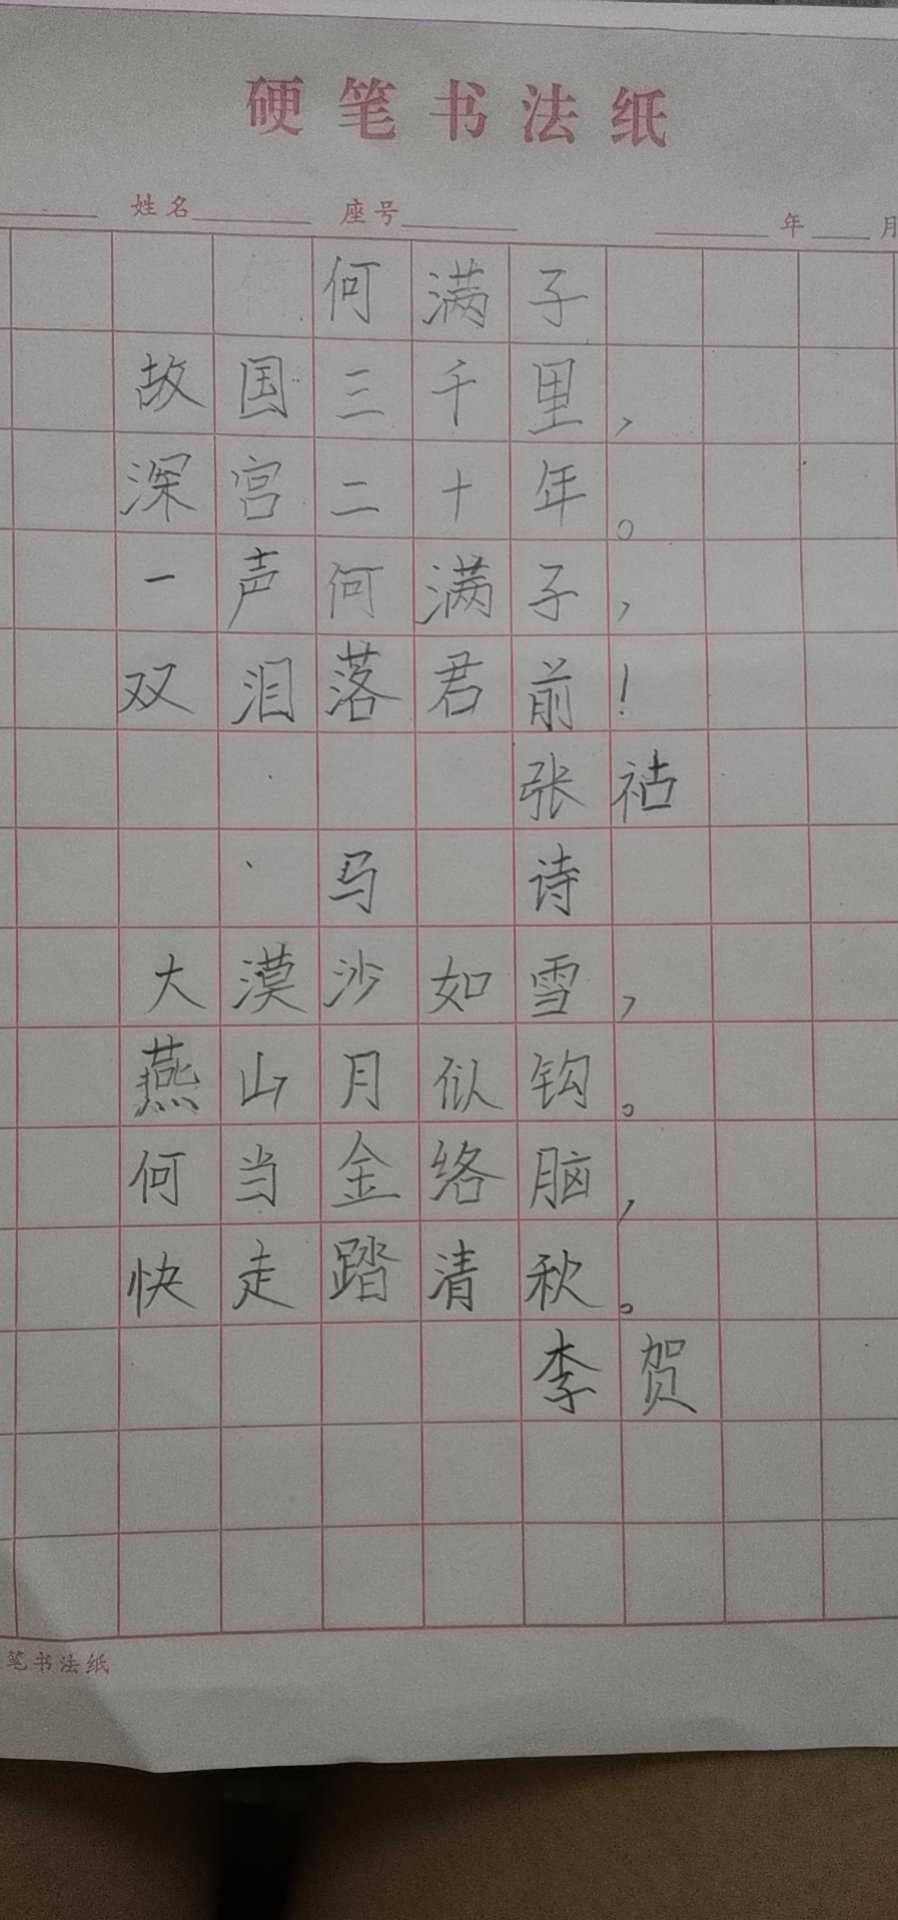 硬笔书法纸
姓名 座号 年 月
何满子
故国三千里，
深宫二十年。
一声何满子，
双泪落君前！
张祜
马 诗
大漠沙如雪，
燕山月似钩。
何当金络脑，
快走踏清秋。
李贺
笔书法纸